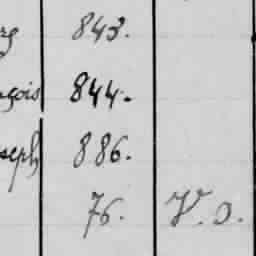 rg 843.
nçois 844.
seph 886.
76. V. o.